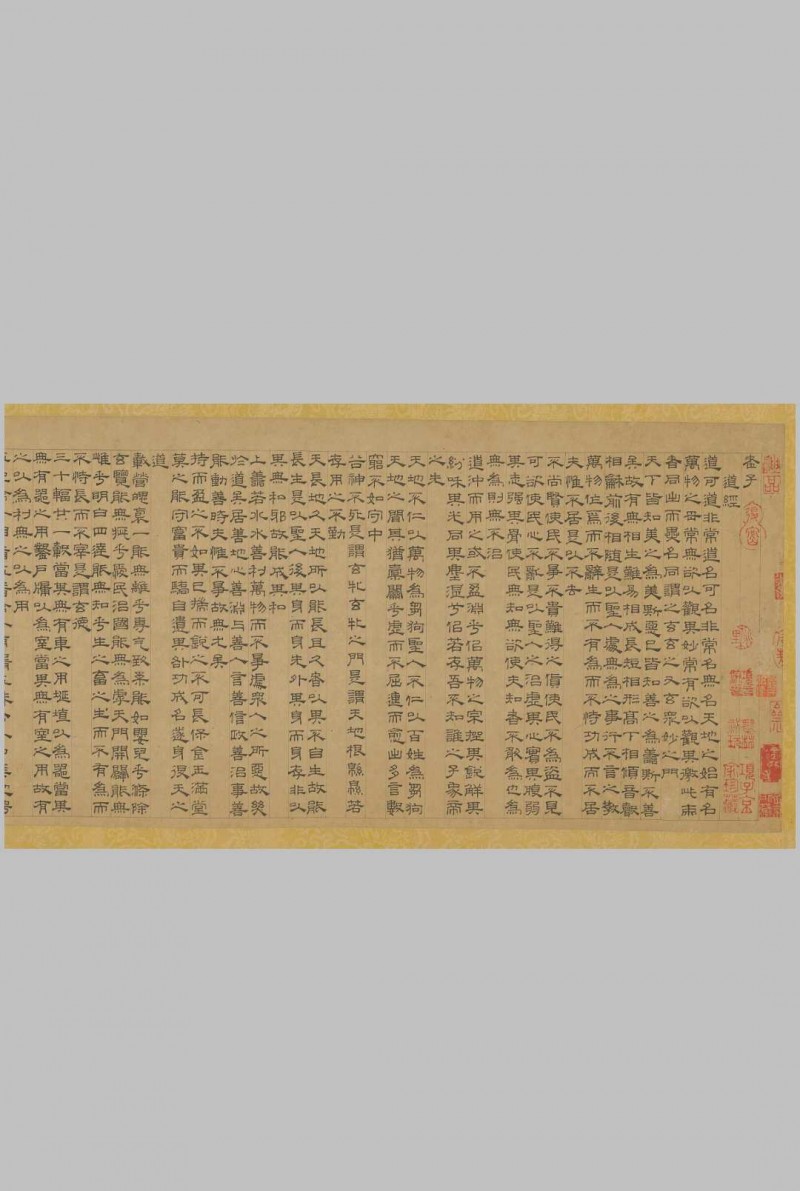 老子
道經
道可道非常道名可名非常名無名天地之始有名
萬物之母常無欲以觀其妙常有欲以觀其徼此兩
者同出而異名同謂之玄玄之又玄衆妙之門
天下皆知美之為美斯惡已皆知善之為善斯不善
矣故有無相生難易相成長短相形高下相傾音聲
相龢前後相隨是以聖人處無為之事行不言之敎
萬物作焉而不辭生而不有為而不恃功成而不居
夫惟不居是以不去
不尚賢使民不爭不貴難得之貨使民不為盜不見
可欲使民心不亂是以聖人之治虛其心實其腹弱
其志强其骨使民無知無欲使夫知者不敢為也為
無為則無不治
道沖而用之或不盈淵兮佀萬物之宗挫其銳解其
紛咊其光同其塵湛兮佀若存吾不知誰之子象帝
之先
天地不仁以萬物為芻狗聖人不仁以百姓為芻狗
天地之閒其猶橐籥乎虛而不屈動而愈出多言數
窮不如守中
谷神不死是謂玄牝玄牝之門是謂天地根緜緜若
存用之不勤
天長地久天地所以能長且久者以其不自生故能
長生是以聖人後其身而身先外其身而身存非以
其無私邪故能成其私
上善若水水善利萬物而不爭處衆人之所惡故幾
於道矣居善地心善淵与善人言善信政善治事善
能動善時夫惟不爭故無尤矣
持而盈之不如其已揣而銳之不可長保金玉滿堂
莫之能守富貴而驕自遺其咎功成名遂身退天之
道
載營魄裒一能無離乎專气致柔能如嬰兒乎滌除
玄覽能無疵乎愛民治國能無為乎天門開闔能無
雌乎明白四達能無知乎生之畜之生而不有為而
不恃長而不宰是謂玄德
三十輻共一轂當其無有車之用埏埴以為器當其
無有器之用鑿戶牖以為室當其無有室之用故有
之以為利無之以為用